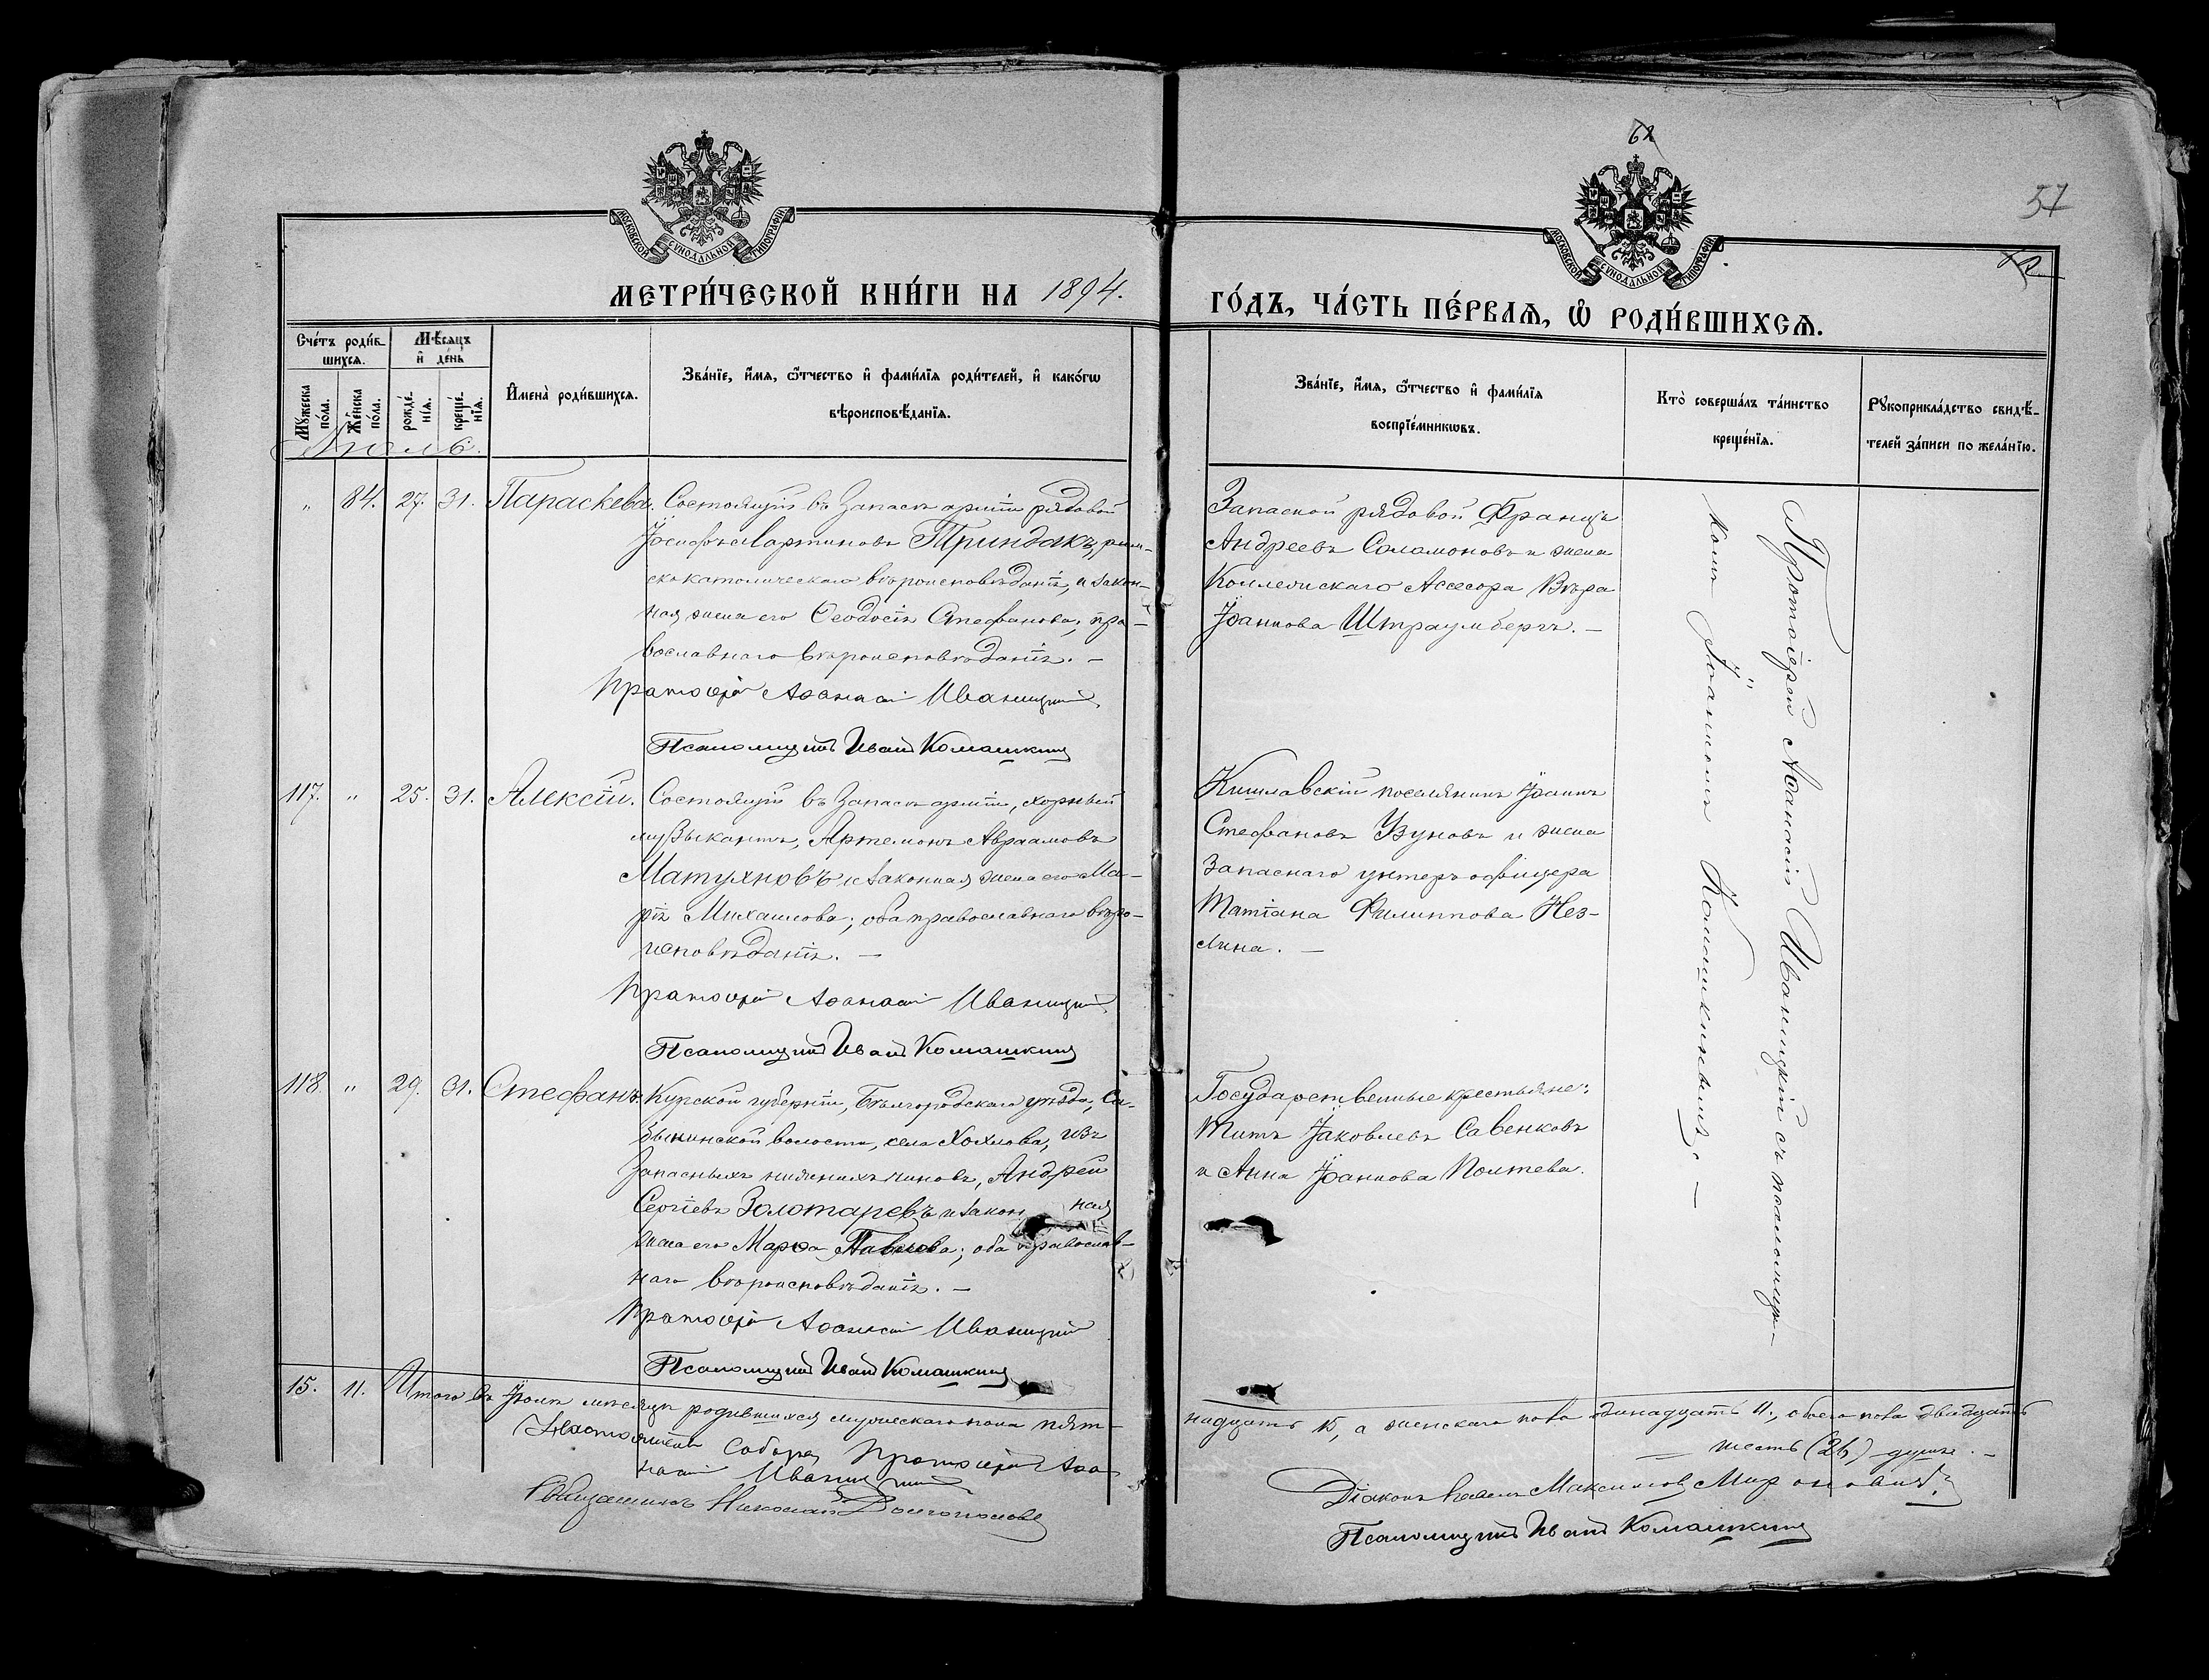 62
57
МОСКОВСКОЙ СѴНОДАЛЬНОЙ ТИПОГРАФІИ
МОСКОВСКОЙ СѴНОДАЛЬНОЙ ТИПОГРАФІИ
МЕТРИ́ЧЕСКОЙ КНИ́ГИ НА 1894.
ГО́ДЪ, ЧА́СТЬ ПЕ́РВАѦ, Ѽ РОДИ́ВШИХСѦ.
Сче́тъ роди́в-
шихсѧ.
Мꙋжеска по́ла.
Же́нска по́ла.
Мѣ́сѧцъ
и҆ де́нь
рожде́нїѧ.
креще́нїѧ.
И҆мена̀ роди́вшихсѧ.
Зва́нїе, и҆́мѧ, ѻ҆́тчество и҆ фами́лїѧ роди́телей, и҆ како́гѡ
вѣроисповѣ́данїѧ.
Зва́нїе, и҆́мѧ, ѻ҆́тчество и҆ фами́лїѧ
воспрїе́мникѡвъ.
Кто̀ соверша́лъ та́инство
креще́нїѧ.
Рꙋкоприкла́дство свидѣ́-
телей за́писи по жела́нїю.
Іюль
" 84. 27. 31. Параскева.
Состоящій въ запасѣ арміи рядовой
Іосифъ Мартиновъ Приндакъ, рим-
скокатолическаго вѣроисповѣданія, и закон-
ная жена его Ѳеодосія Стефанова, пра-
вославнаго вѣроисповѣданія. –
Протоіерей Аѳанасій Иваницкій
Псаломщикъ Иванъ Комашкинъ
Запасной рядовой Францъ
Андреевъ Саламоновъ и жена
Коллежскаго Ассесора Вѣра
Іоаннова Штраумбергъ. –
117. " 25. 31. Алексій.
Состоящій въ запасѣ арміи, хорный
музыкантъ, Артемонъ Авраамовъ
Матухновъ и законная жена его Ма-
рія Михаилова; оба православнаго вѣро-
исповѣданія. –
Протоіерей Аѳанасій Иваницкій
Псаломщикъ Иванъ Комашкинъ
Кишлавскій поселянинъ Іоаннъ
Стефановъ Узуновъ и жена
запаснаго унтеръ офицера
Татіана Филиппова Нез-
лина. –
118 " 29. 31. Стефанъ.
Курской губерніи, Бѣлгородскаго уѣзда, Са-
зыкинской волости, села Хохлова, изъ
запасныхъ нижнихъ чиновъ, Андрей
Сергіевъ Золотаревъ и закон ная
жена его Марѳа Павлова; оба православ-
наго вѣроисповѣданія. –
Протоіерей Аѳанасій Иваницкій
Псаломщикъ Иванъ Комашкинъ
Государственные крестьяне:
Титъ Іаковлевъ Савенковъ
и Анна Іоаннова Полтева.
Протоіерей Аѳанасій Иваницкій съ псаломщи-
комъ Іоанномъ Комашкинымъ. –
15. 11. Итого въ Іюлѣ мѣсяцѣ родившихся мужескаго пола пят-
надцать 15, а женскаго пола одинадцать 11., обоего пола двадцать
шесть (26) душъ. –
Настоятель Собора Протоіерей Аѳа
насій Иваницкій
Священникъ Николай Долгополовъ
Діаконъ Павелъ Максимовъ Мироновичъ
Псаломщикъ Иванъ Комашкинъ